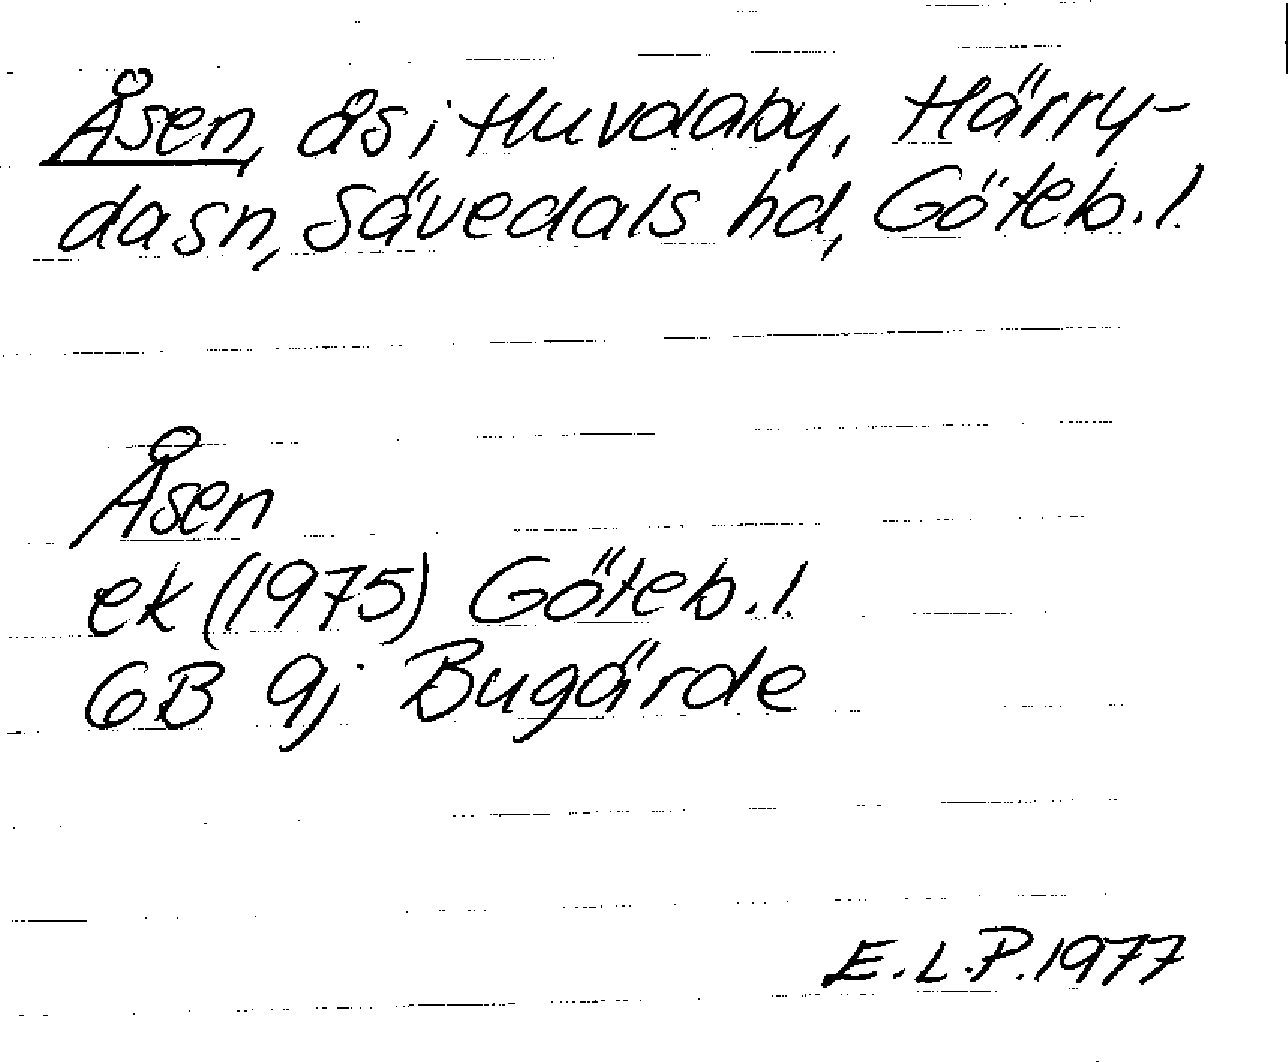 Åsen, ås i Huvdaby, Härry-
da sn, Sävedals hd, Göteb. l.
Åsen
ek (1975) Göteb. l.
6B 9j Bugärde
E.L.P. 1977